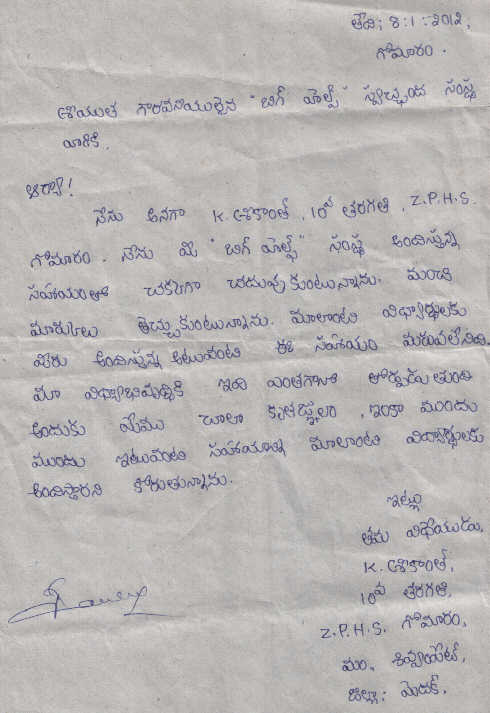 తేది; 8:1:2012,
గోమారం.
శ్రీయుత గౌరవనీయులైన "బిగ్ హెల్ప్" స్వచ్ఛంద సంస్థ
వారికి.
ఆర్యా!
నేను అనగా K. శ్రీకాంత్, 10వ తరగతి, Z.P.H.S.
గోమారం. నేను మీ "బిగ్ హెల్ప్" సంస్థ అందిస్తున్న
సహాయంతో చక్కగా చదువు కుంటున్నాను. మంచి
మార్కులు తెచ్చుకుంటున్నాను. మాలాంటి విధ్యార్థులకు
మీరు అందిస్తున్న అటువంటి ఈ సహాయం మరువలేనిది.
మా విధ్యాభివృద్ధికి ఇది ఎంతగానో తోడ్పడు తుంది
అందుకు మేము చాలా కృతజ్ఞులం, ఇంకా ముందు
ముందు ఇటువంటి సహాయాన్ని మాలాంటి విద్యార్థులకు
అందిస్తారని కోరుతున్నాను.
ఇట్లు
తమ విధేయుడు,
K. శ్రీకాంత్,
10వ తరగతి,
Z.P.H.S. గోమారం,
మం. శివ్వంపేట్,
జిల్లా: మెదక్.